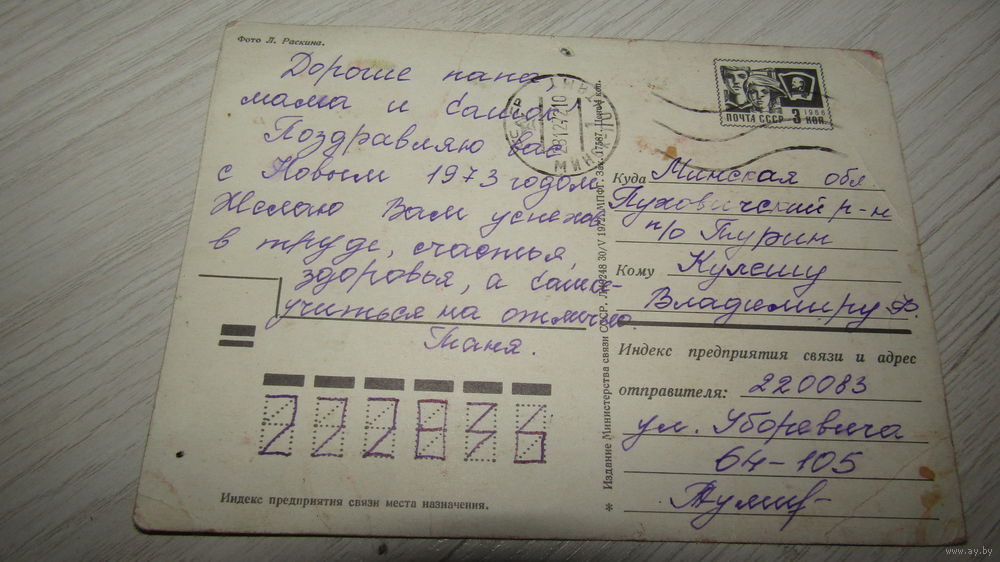 Фото Л. Раскина.
Дорогие папа,
мама и Саша!
Поздравляю вас
с Новым 1973 годом.
Желаю Вам успехов
в труде, счастья,
здоровья, а Саше-
учиться на отлично.
Таня.
Индекс предприятия связи места назначения.
ПОЧТА СССР 3 коп.
1966
28127210
МИНСК
Куда Минская обл.
Пуховичский р-н
п/о Турин
Кому Кулешу
Владимиру Ф.
Индекс предприятия связи и адрес
отправителя: 220083
ул. Уборевича
64-105
222836
Издание Министерства связи СССР. 30/V 1972. МПФГ. Зак. 17587. Цена 4 коп.
www.ay.by